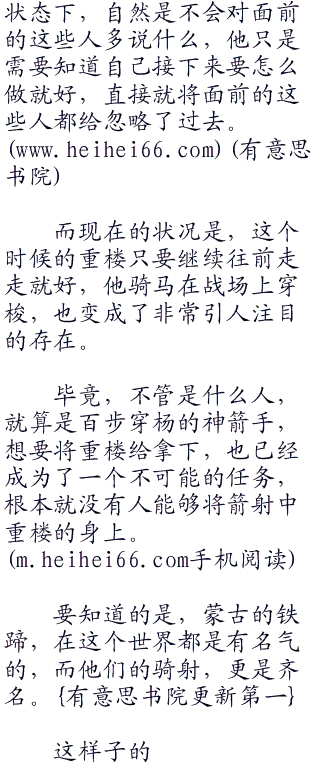 状态下，自然是不会对面前
的这些人多说什么，他只是
需要知道自己接下来要怎么
做就好，直接就将面前的这
些人都给忽略了过去。
(www.heihei66.com)(有意思
书院)
而现在的状况是，这个
时候的重楼只要继续往前走
走就好，他骑马在战场上穿
梭，也变成了非常引人注目
的存在。
毕竟，不管是什么人，
就算是百步穿杨的神箭手，
想要将重楼给拿下，也已经
成为了一个不可能的任务，
根本就没有人能够将箭射中
重楼的身上。
(m.heihei66.com手机阅读)
要知道的是，蒙古的铁
蹄，在这个世界都是有名气
的，而他们的骑射，更是齐
名。{有意思书院更新第一}
这样子的